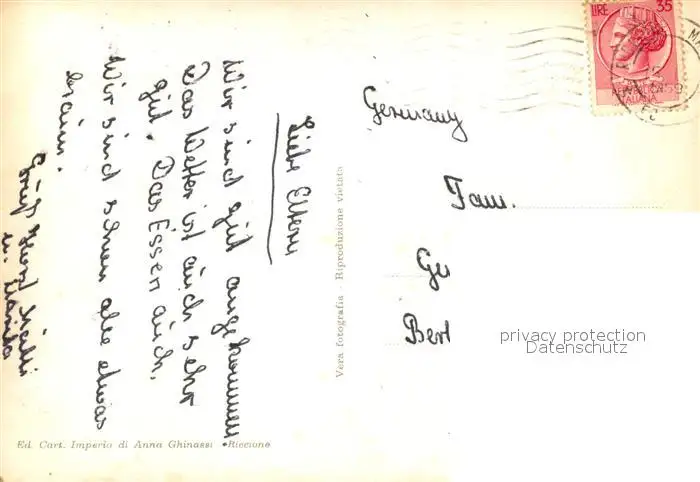 Liebe Eltern
Wir sind gut angekommen
Das Wetter ist auch sehr
gut. Das Essen auch.
Wir sind schon alle etwas
braun.
Gruß Horst
u.
Vera fotografia - Riproduzione vietata
Ed. Cart. Imperia di Anna Ghinassi • Riccione
LIRE 35
ITALIANA
Germany
Fam.
Ge
Berl
privacy protection
Datenschutz